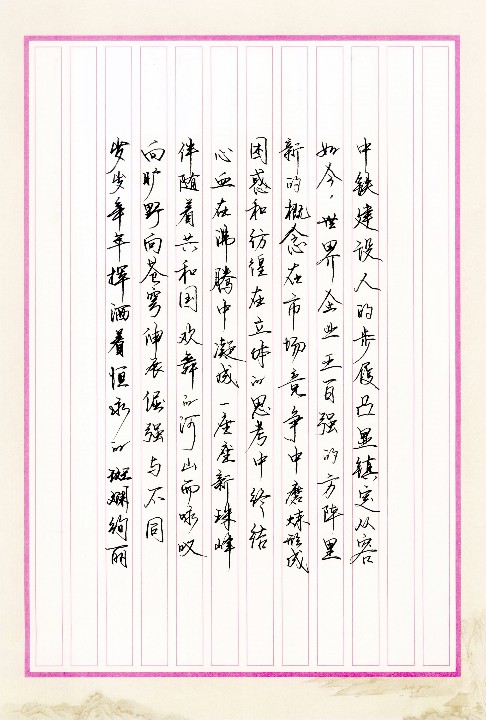 中铁建设人的步履凸显镇定从容
如今，世界企业五百强的方阵里
新的概念在市场竞争中磨炼形成
困惑和彷徨在立体的思考中终结
心血在沸腾中凝成一座座新珠峰
伴随着共和国欢舞的河山而咏叹
向旷野向苍穹伸展倔强与不同
岁岁年年挥洒着恒永的斑斓绚丽